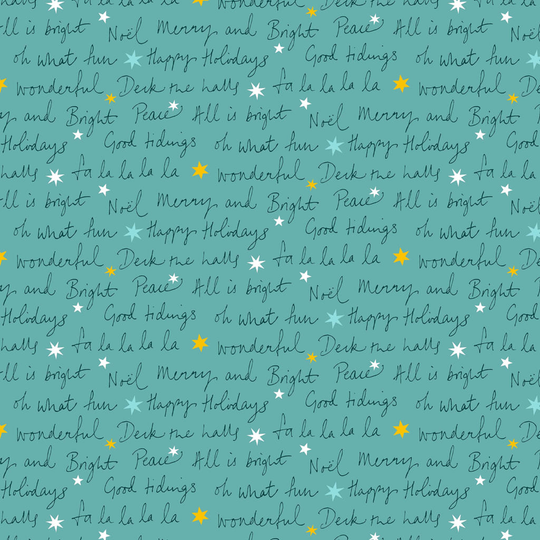 wonderful Deck the halls fa la la la la
All is bright Noël Merry and Bright Peace All is bright Noël
oh what fun Happy Holidays Good tidings oh what fun
wonderful Deck the halls fa la la la la wonderful
and Bright Peace All is bright Noël Merry and Bright
Holidays Good tidings oh what fun Happy Holidays Good
halls fa la la la la wonderful Deck the halls fa la
All is bright Noël Merry and Bright Peace All is bright Noël
oh what fun Happy Holidays Good tidings oh what fun
wonderful Deck the halls fa la la la la wonderful
and Bright Peace All is bright Noël Merry and Bright
Holidays Good tidings oh what fun Happy Holidays Good
halls fa la la la la wonderful Deck the halls fa la
All is bright Noël Merry and Bright Peace All is bright Noël
oh what fun Happy Holidays Good tidings oh what fun
wonderful Deck the halls fa la la la la wonderful
and Bright Peace All is bright Noël Merry and Bright
Holidays Good tidings oh what fun Happy Holidays Good
halls fa la la la la wonderful Deck the halls fa la